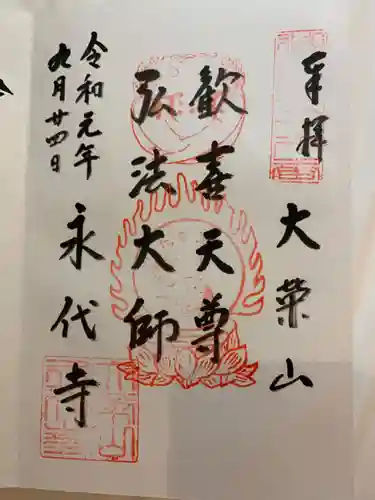 奉拝
大榮山
歓喜天尊
弘法大師
永代寺
令和元年
九月廿四日